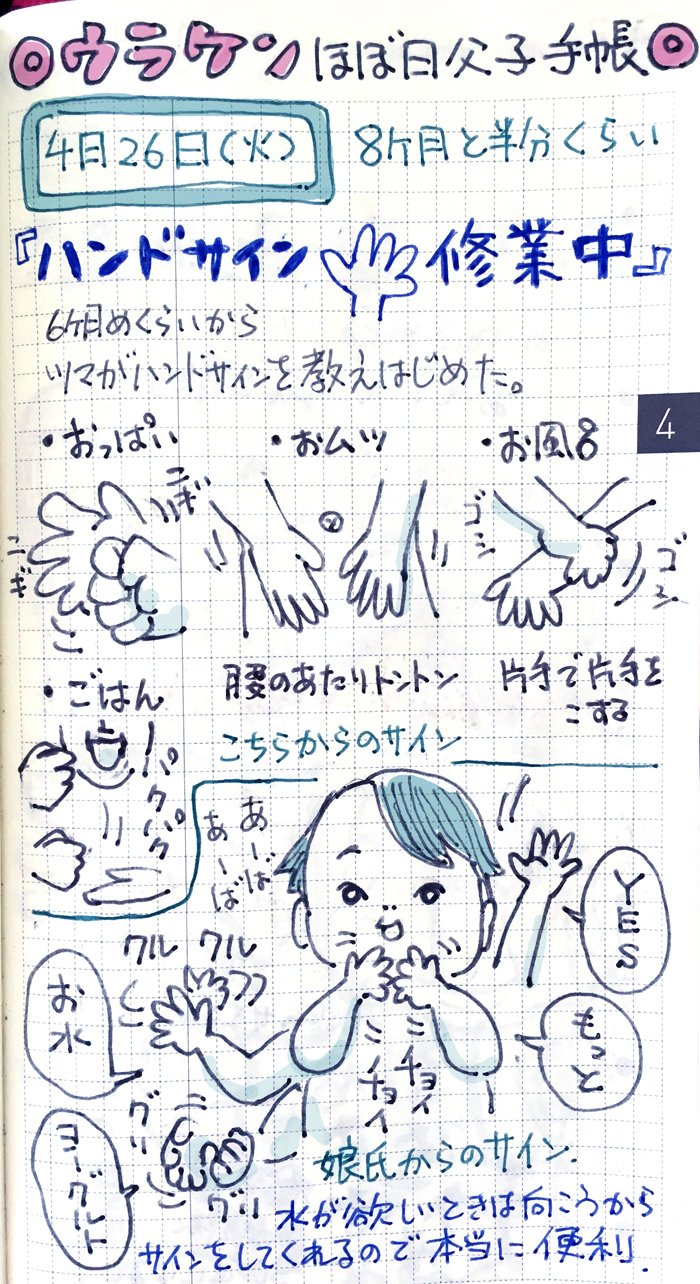 ◎ウラケン ほぼ日父子手帳◎
4月26日(火) 8ヶ月と半分くらい
『ハンドサイン 修業中』
6ヶ月めくらいから
ツマがハンドサインを教えはじめた。
4
・おっぱい ・おムツ ・お風呂
ニギ
ニギ
ゴシ
ゴシ
腰のあたりトントン
片手で片手を
こする
・ごはん
パクパク
こちらからのサイン
あーば
あーば
YES
クルクル
お水
もっと
チョイ
チョイ
グリ
グリ
ヨーグルト
娘氏からのサイン.
水が欲しいときは向こうから
サインをしてくれるので本当に便利.